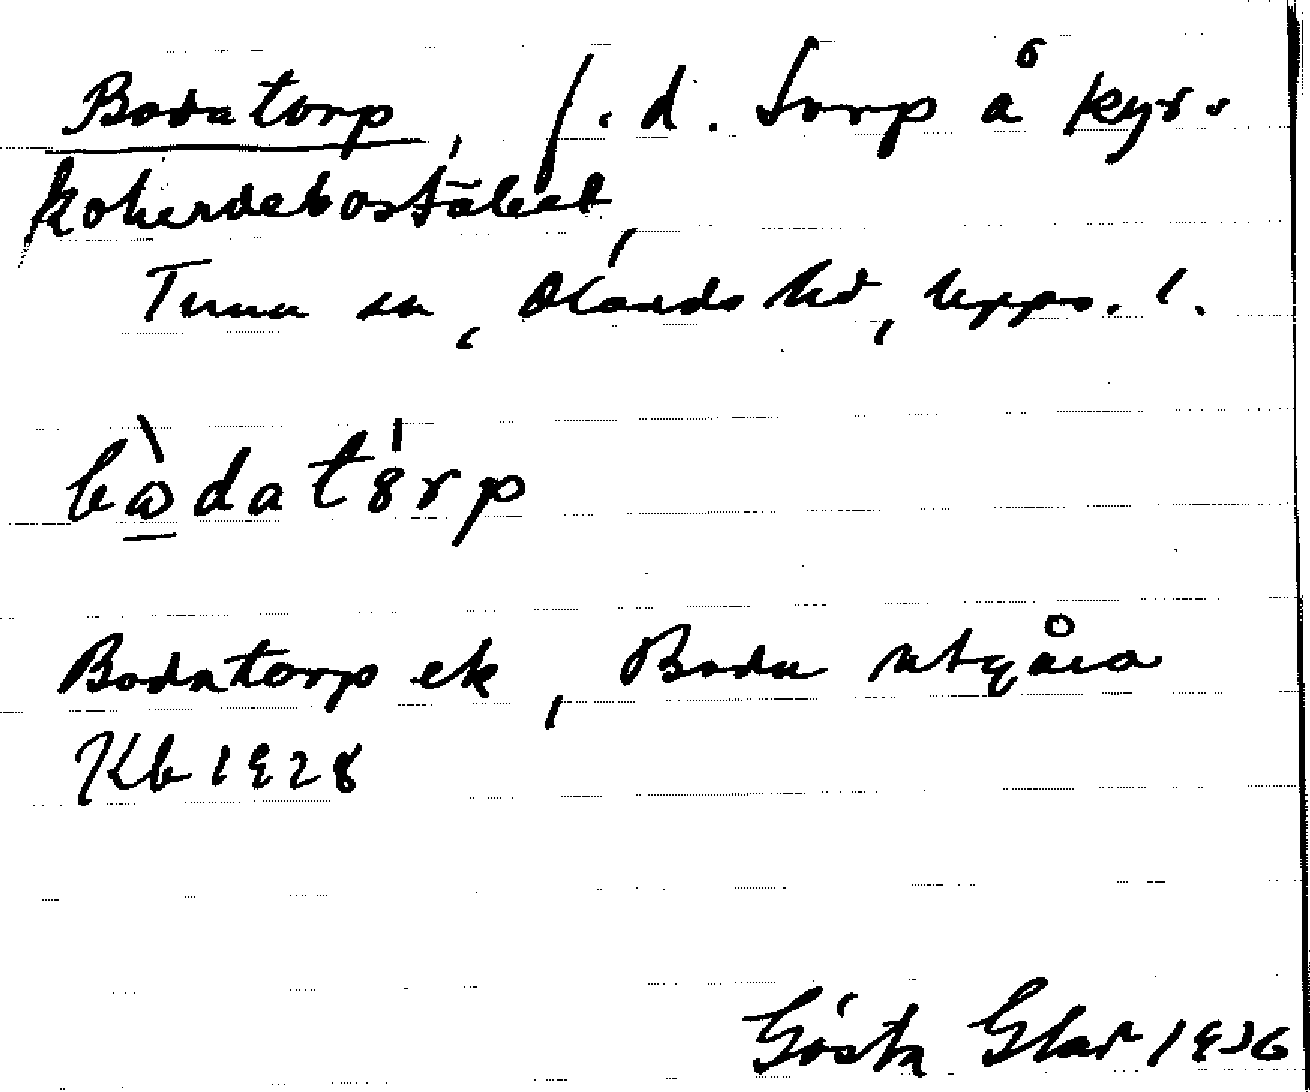 Bodatorp, f.d. torp å kyr-
koherdebostället,
Tuna sn, Olands hd, Upps. l.
bɷ̀datȣ̍rp
Bodatorp ek, Boda utgåva
Kb 1928
Gösta